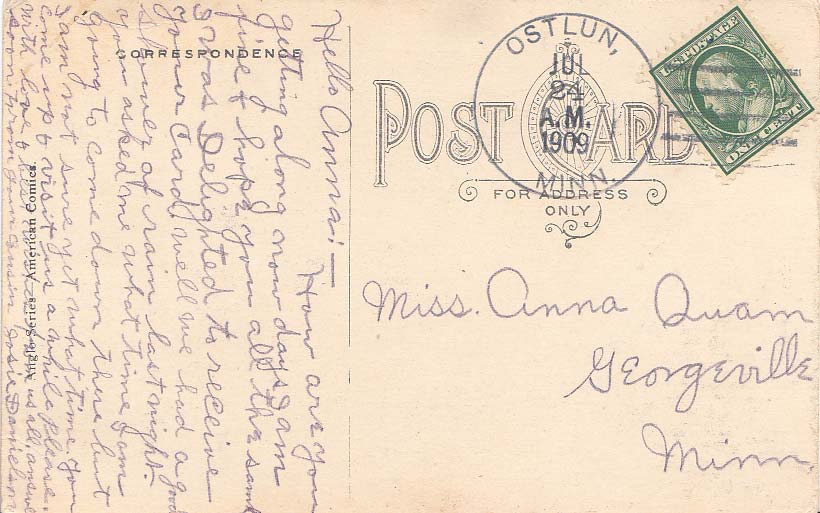 CORRESPONDENCE
POST CARD
FOR ADDRESS
ONLY
OSTLUN,
JUL
24
A.M.
1909
MINN.
U.S. POSTAGE
ONE CENT
Miss. Anna Quam
Georgeville
Minn.
Hello Anna:—
How are you
getting along now days I am
fine & hope you all the same
I was Delighted to receive
your Card, well we had a good
shower of rain last night.
you asked me what time I am
going to come down there but
I am not sure yet what time. you
come up & visit us a while please.
with love & from us all, answer
soon. from your cousin Josie Danielson
Anglo Series American Comics.